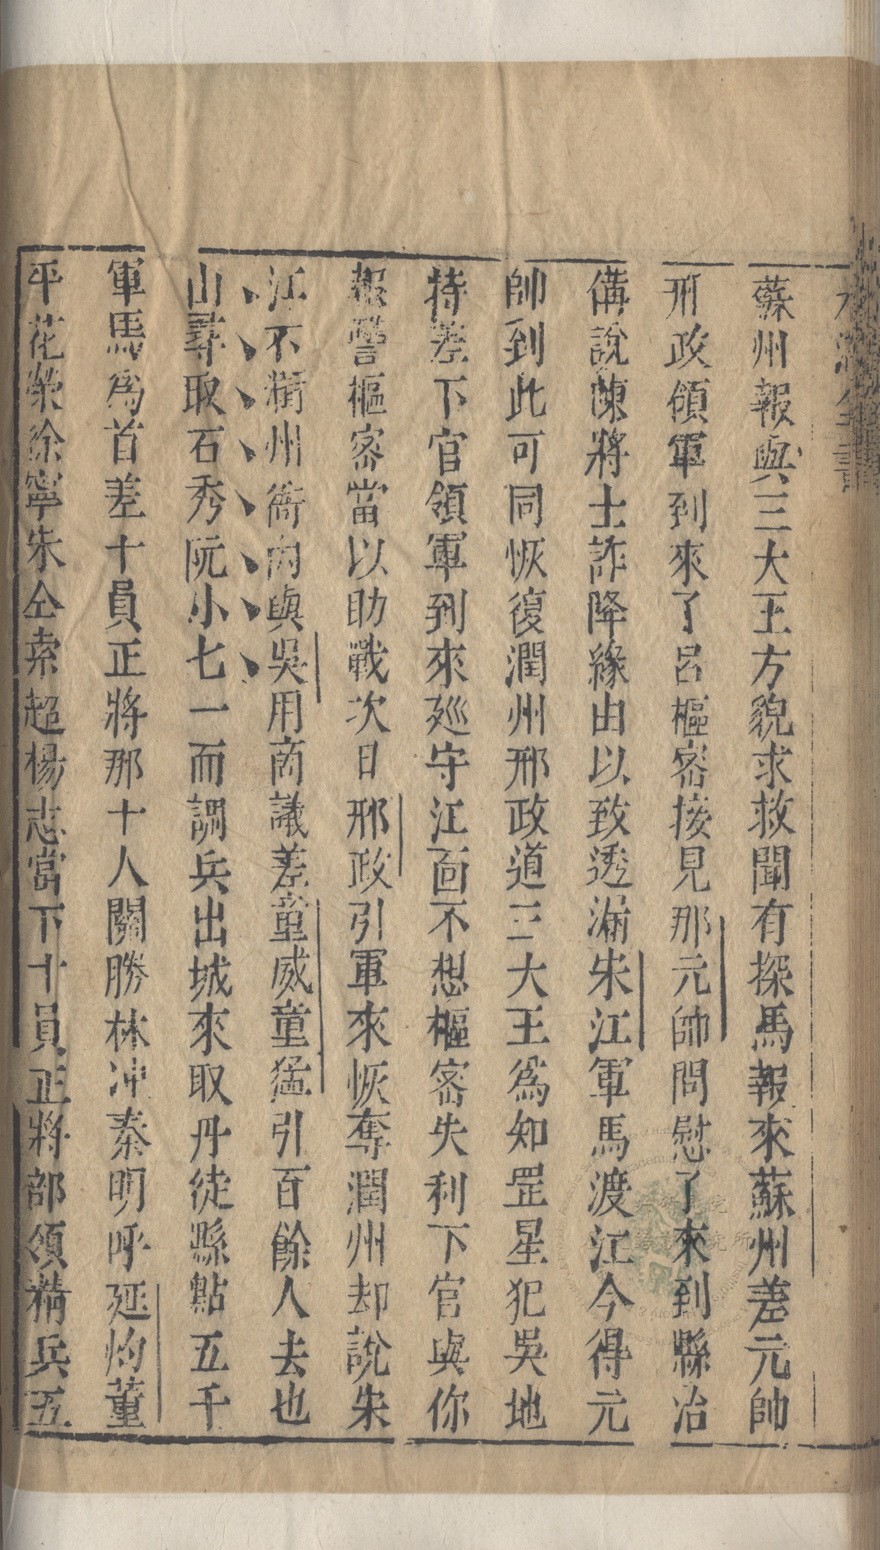 水滸全書
蘇州報與三大王方貌求救聞有探馬報來蘇州差元帥
邢政領軍到來了呂樞密接見那元帥問慰了來到縣治
備說陳將士詐降緣由以致透漏朱江軍馬渡江今得元
帥到此可同恢復潤州邢政道三大王為知罡星犯吳地
特差下官領軍到來廵守江面不想樞密失利下官與你
報讐樞密當以助戰次日邢政引軍來恢奪潤州却說朱
江不潤州衙內與吳用商議差童威童猛引百餘人去也
山尋取石秀阮小七一面調兵出城來取丹徒縣點五千
軍馬為首差十員正將那十人關勝林冲秦明呼延灼董
平花榮徐寧朱仝索超楊志當下十員正將部領精兵五